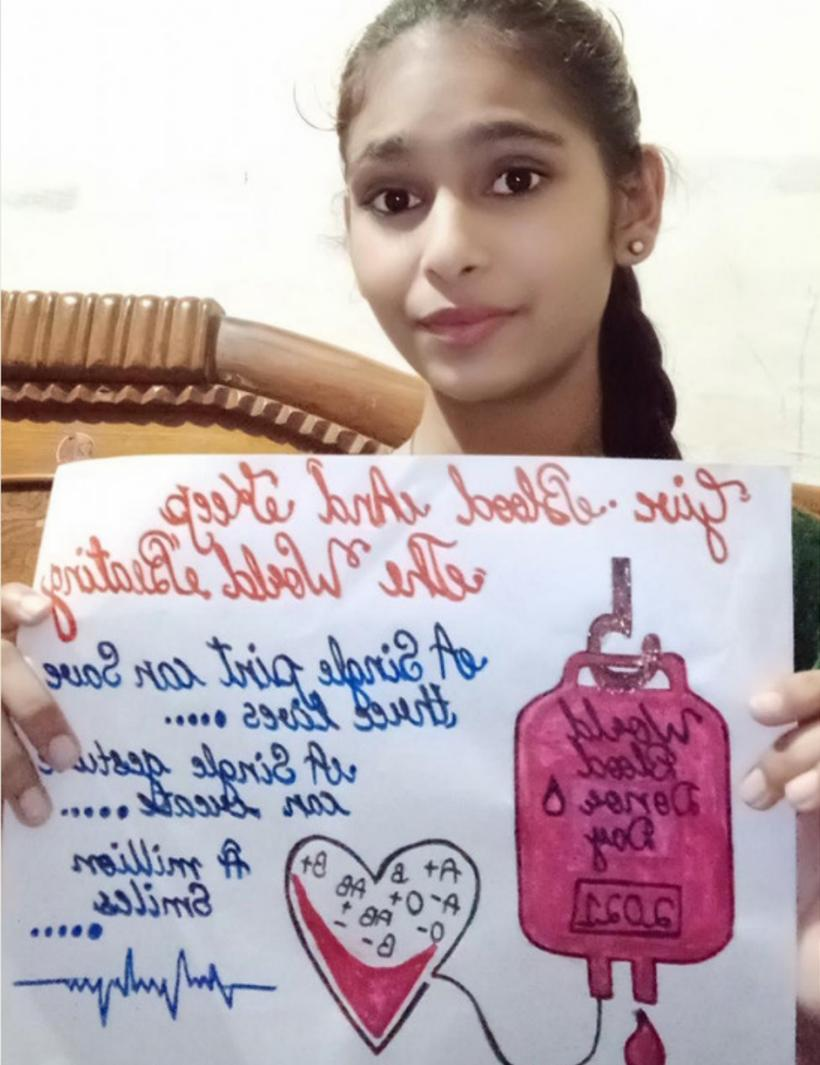 Give Blood And Keep
The World Beating
A Single pint can Save
three lives .....
A Single gesture
can create .....
A million
Smiles
.....
World
Blood
Donor
Day
2021
A+ B B+
A- O+ AB
O- AB+ -
B-